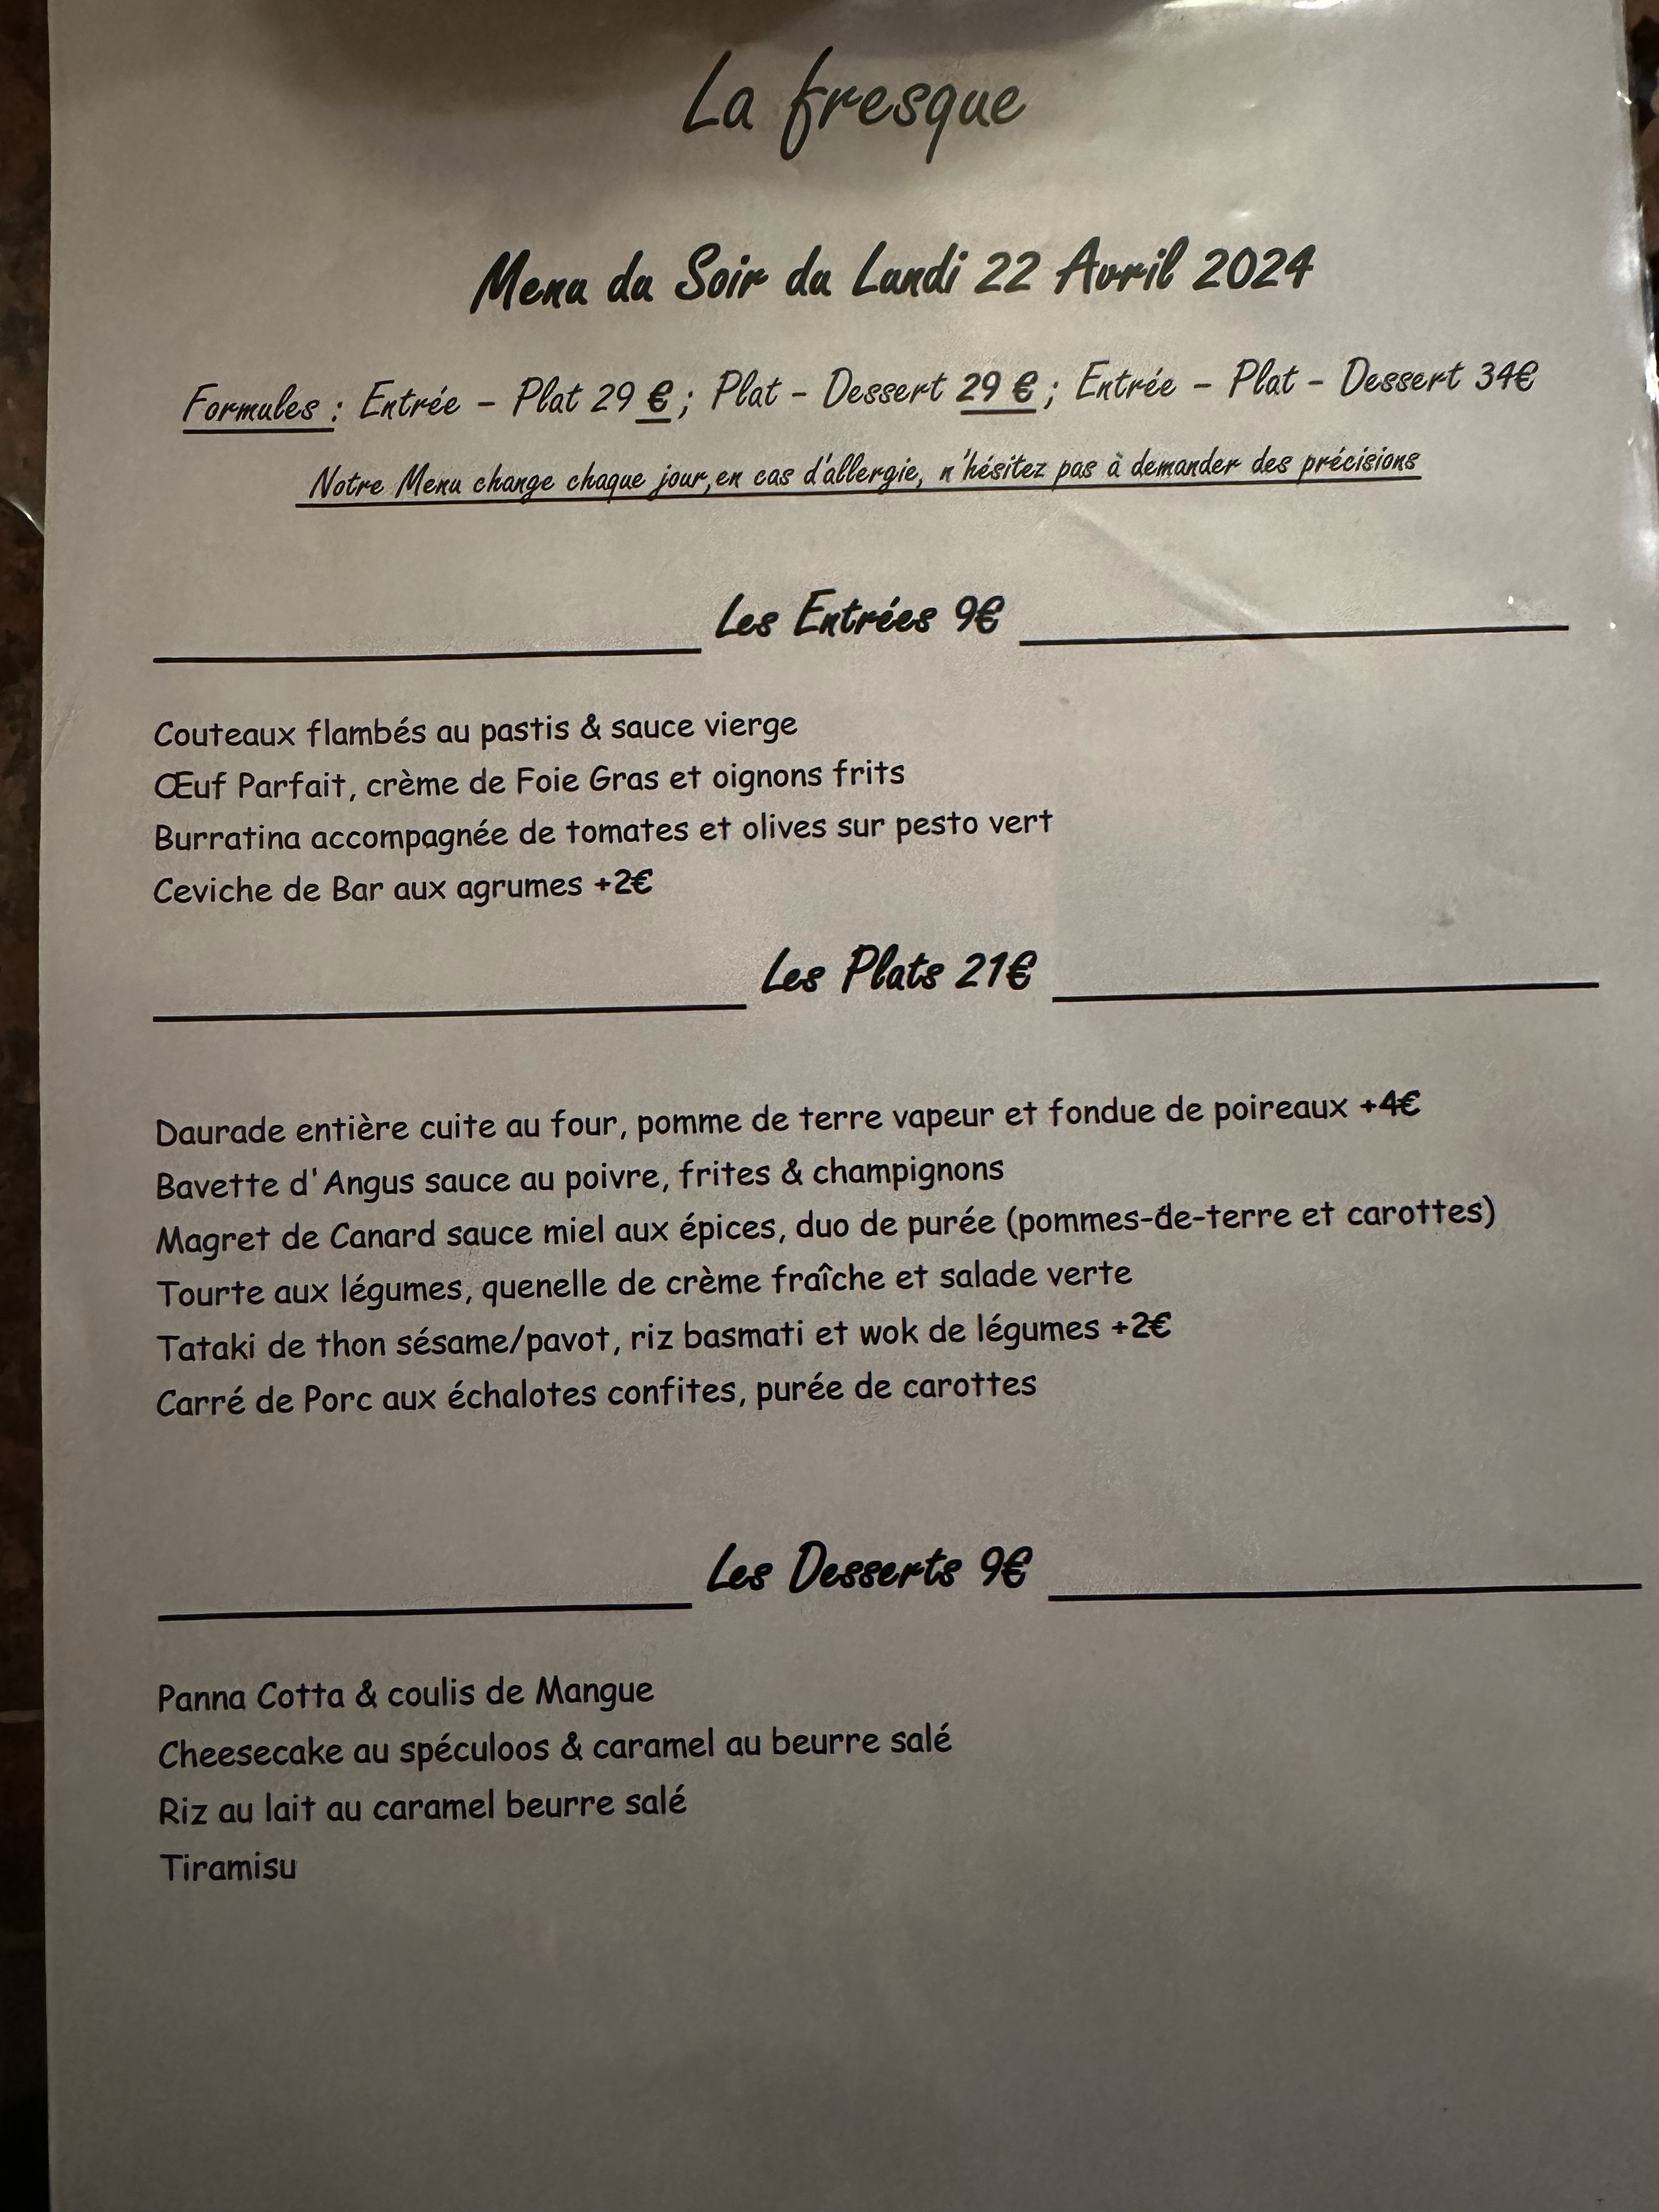 La fresque
Menu du Soir du Lundi 22 Avril 2024
Formules : Entrée – Plat 29 € ; Plat – Dessert 29 € ; Entrée – Plat – Dessert 34€
Notre Menu change chaque jour,en cas d'allergie, n'hésitez pas à demander des précisions
Les Entrées 9€
Couteaux flambés au pastis & sauce vierge
Œuf Parfait, crème de Foie Gras et oignons frits
Burratina accompagnée de tomates et olives sur pesto vert
Ceviche de Bar aux agrumes +2€
Les Plats 21€
Daurade entière cuite au four, pomme de terre vapeur et fondue de poireaux +4€
Bavette d'Angus sauce au poivre, frites & champignons
Magret de Canard sauce miel aux épices, duo de purée (pommes-de-terre et carottes)
Tourte aux légumes, quenelle de crème fraîche et salade verte
Tataki de thon sésame/pavot, riz basmati et wok de légumes +2€
Carré de Porc aux échalotes confites, purée de carottes
Les Desserts 9€
Panna Cotta & coulis de Mangue
Cheesecake au spéculoos & caramel au beurre salé
Riz au lait au caramel beurre salé
Tiramisu